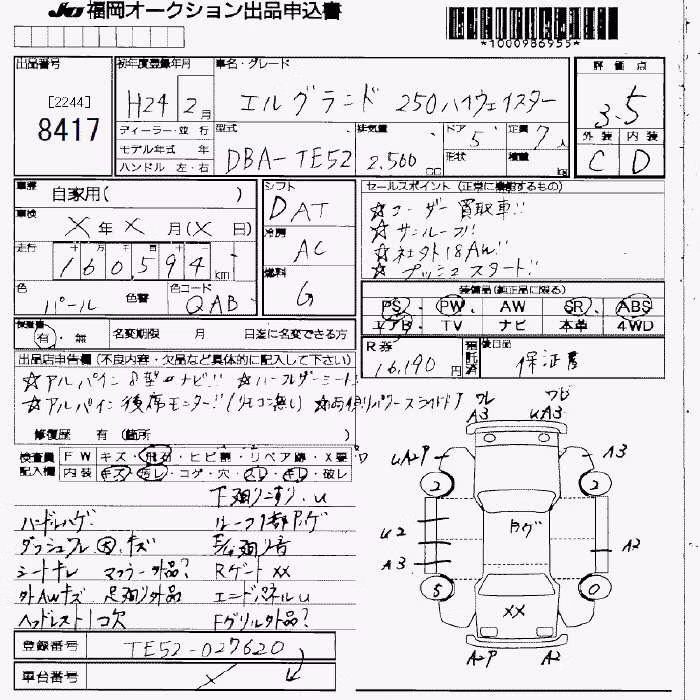 JU 福岡オークション出品申込書
*1000986955*
出品番号 初年度登録年月 車名・グレード 評価点
[2244]
8417
H24 2月 エルグランド 250ハイウェイスター
3.5
ディーラー・並行 型式 排気量 ドア 定員 外装 内装
モデル年式 年 DBA-TE52 2,500 cc 5 7人 C D
ハンドル 左・右 形状 積量 kg
車歴 自家用( ) シフト セールスポイント (正常に機能するもの)
DAT ☆コーダー買取車!!
車検 X年X月(X日) ☆サンルーフ!!
走行 160,594 km 冷房 AC ☆社外18AW!!
☆プッシュスタート!!
色 パール 色替 色コード QAB 燃料 G
装備品(純正品に限る)
PS・PW・AW SR・ABS
エアB・TV ナビ 本革 4WD
有・無 名変期限 月 日迄に名変できる方
R券 16,190円 預託済 後日品 保証書
出品店申告欄 (不良内容・欠品など具体的に記入して下さい)
☆アルパイン8型ナビ!! ☆ハーフレザーシート!!
☆アルパイン後席モニター!! (リモコン無し) ☆両側パワースライドドア
修復歴 有 (箇所 )
検査員 FW キズ・飛石・ヒビ割・リペア跡・X要
記入欄 内装 キズ・汚レ・コゲ・穴・スレ・キレ・破レ
下廻りこすり、U
ハンドルハゲ ルーフ1部ハゲ
ダッシュアレ 大、キズ 足廻り音
シートキレ マフラー外品? Rゲート XX
外AWキズ 足廻り外品 エンドパネルU
ヘッドレスト1コ欠 Fグリル外品?
登録番号 TE52-027620
車台番号
ワレ A3
ワヒ UA3
UA2P
A3
2
2
U2
ハゲ
A3
A2
5
0
XX
A2P
A2